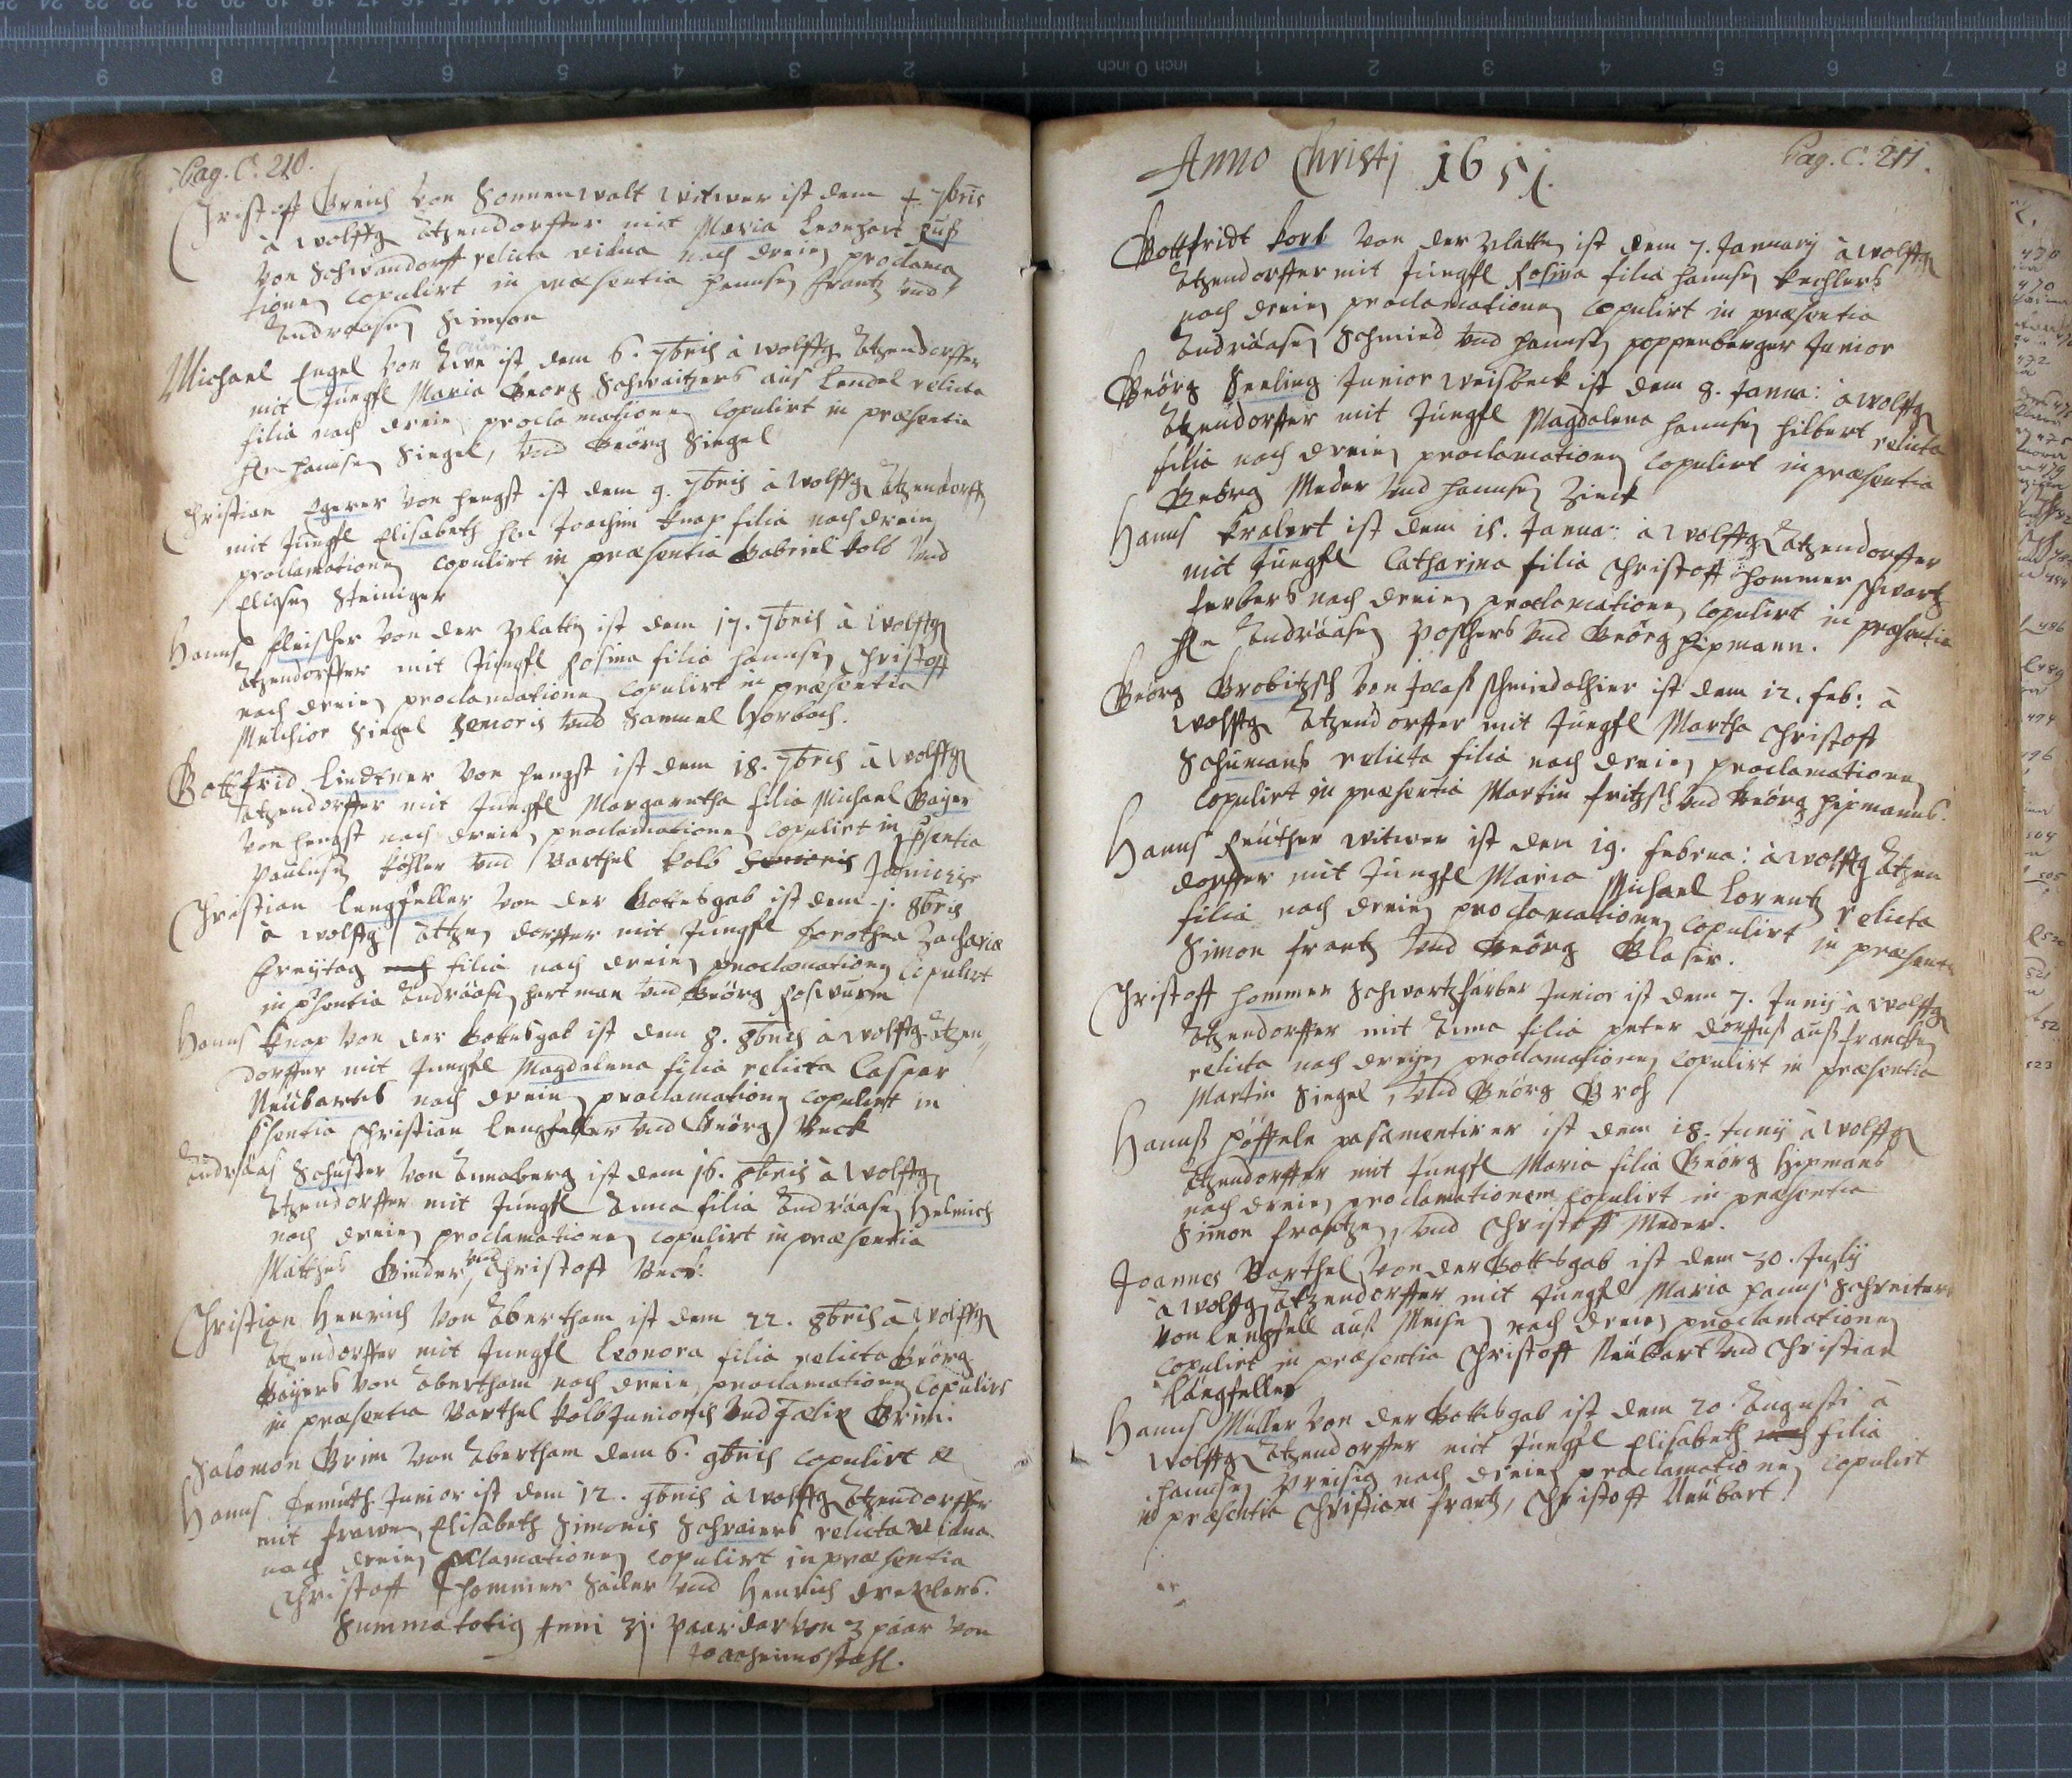 Pag. C. 210.
Christoff Greich von Sonnenwalt witwer ist dem 4. 7bris
à Wolffg Atzendorffer mit Maria Leonhart
von Schwandorff relicta vidua nach dreien proclama
tionen copulirt in præsentia Hannsen Frantz vnd
Andreasen Simon
Michael Engel von Aue ist dem 6. 7bris à Wolffg Atzendorffer
mit Jungfl Maria Georg Schweitzers aus relicta
filia nach dreien proclamationen copulirt in præsentia
Hannsen Siegel, vnd Geörg Siegel
Christian Egerer von Hengst ist dem 9. 7bris à Wolffg Atzendorff
mit Jungfl Elisabeth Joachim Knap filia nach dreien
proclamationen copulirt in præsentia Gabriel Kolb vnd
Eliasen Steiniger
Hanns Fleischer von der Platten ist dem 17. 7bris à Wolffg
Atzendorffer mit Jungfl Rosina filia Hannsen Christoff
nach dreien proclamationen copulirt in præsentia
Melchior Siegel Senioris vnd Samuel Horbach.
Gottfrid Lindtner von Hengst ist dem 18. 7bris à Wolffg
Atzendorffer mit Jungfl Margaretha filia Michael Bayer
von Hengst nach dreien proclamationen copulirt in psentia
Paulusen Köhler vnd Barthel Kolb Junioris
Christian Lengfeller von der Gottesgab ist dem 1. 8bris
à Wolffg Attzendorffer mit Jungfl Dorothea Zachariæ
Freytag filia nach dreien proclamationen copulirt
in psentia Andreasen Hartman vnd Geörg Roswurm
Hanns Knap von der Gottesgab ist dem 8. 8bris à Wolffg Atzen
dorffer mit Jungfl Magdalena filia relicta Caspar
Neübarts nach dreien proclamationen copulirt in
psentia Christian Lengfeller vnd Geörg Beck
Andreas Schuster von Annaberg ist dem 16. 8bris à Wolffg
Atzendorffer mit Jungfl Anna filia Andreasen Helmich
nach dreien proclamationen copulirt in præsentia
Matthes Binder vnd Christoff Beck.
Christian Henrich von Abertham ist dem 22. 8bris à Wolffg
Atzendorffer mit Jungfl Leonora filia relicta Geörg
Bayers von Abertham nach dreien proclamationen copulirt
in præsentia Barthel Kolb Junioris vnd Felix Grim.
Salomon Grim von Abertham dem 6. 9bris copulirt
Hanns Demuth Junior ist dem 12. 9bris à Wolffg Atzendorffer
mit Frawen Elisabeth Simonis Schreiers relicta vidua
nach dreien proclamationen copulirt in præsentia
Christoff Hommer Sailer vnd Henrich Drexlers.
Summa totius Anni 31. paar darvon 3 paar von
Joachimsthahl.
Anno Christj 1651.
Pag. C. 211.
Gottfridt Korb von der Platten ist dem 7. January à Wolffg
Atzendorffer mit Jungfl Rosina filia Hannsen Kechlers
nach dreien proclamationen copulirt in præsentia
Andreasen Schmied vnd Hannsen Poppenberger Junior
Geörg Seeling Junior Weisbeck ist dem 8. Janua: à Wolffg
Atzendorffer mit Jungfl Magdalena Hannsen Hilbert relicta
filia nach dreien proclamationen copulirt in præsentia
Geörg Meder vnd Hannsen Zinck
Hanns Kralert ist dem 15. Janua: à Wolffg Atzendorffer
mit Jungfl Catharina filia Christoff Hommer Schwartz
ferbers nach dreien proclamationen copulirt in præsentia
Andreasen Poschers vnd Geörg Hipmann.
Geörg Grobitzsch von schmied alhier ist dem 12. Feb: à
Wolffg Atzendorffer mit Jungfl Martha Christoff
Schumans relicta filia nach dreien proclamationen
copulirt in præsentia Martin Fritzsch vnd Geörg Hipmanns.
Hanns Reuther witwer ist den 19. Februa: à Wolffg Atzen
dorffer mit Jungfl Maria Michael Lorentz relicta
filia nach dreien proclamationen copulirt in præsenti
Simon Frantz vnd Geörg Glaser.
Christoff Hommer Schwartzfärber Junior ist dem 7. Junij à Wolffg
Atzendorffer mit Anna filia Peter Dörffuß auß Francken
relicta nach dreyen proclamationen copulirt in præsentia
Martin Siegel, vnd Geörg Groh
Hannß Höffele pasamentirer ist dem 18. Junij à Wolffg
Atzendorffer mit Jungfl Maria filia Geörg Hipmans
nach dreien proclamationem copulirt in præsentia
Simon Frantzen, vnd Christoff Meder.
Joannes Barthel von der Gottsgab ist dem 30. Julij
à Wolffg Atzendorffer mit Jungfl Maria Hanns Schreiters
von Lengfell auß Meisen nach dreien proclamationen
copulirt in præsentia Christoff Neübart vnd Christian
Längfeller
Hanns Müller von der Gottsgab ist dem 20. Augusti à
Wolffg Atzendorffer mit Jungfl Elisabeth filia
Hannsen Preisig nach dreien proclamationen copulirt
in præsentia Christian Frantz, Christoff Neübart